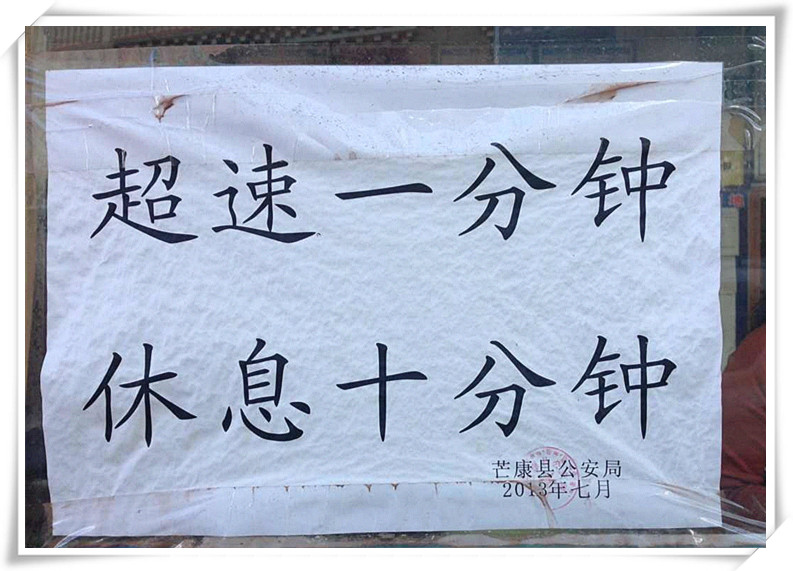 超速一分钟
休息十分钟
芒康县公安局
2013年七月